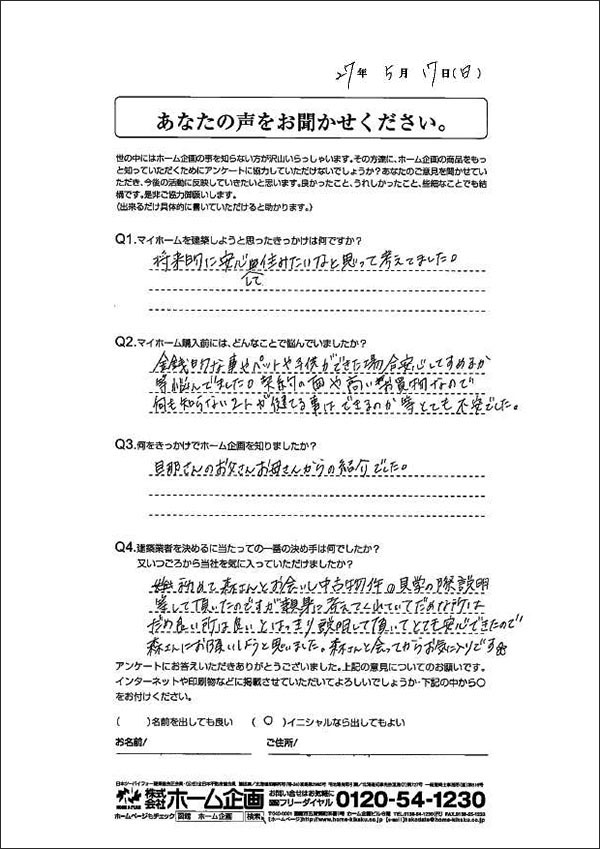 27年 5月 17日(日)
あなたの声をお聞かせください。
世の中にはホーム企画の事を知らない方が沢山いらっしゃいます。その方達に、ホーム企画の商品をもっ
と知っていただくためにアンケートに協力していただけないでしょうか?あなたのご意見を聞かせていた
だき、今後の活動に反映していきたいと思います。良かったこと、うれしかったこと、些細なことでも結
構です。是非ご協力御願いします。
(出来るだけ具体的に書いていただけると助かります。)
Q1.マイホームを建築しようと思ったきっかけは何ですか?
将来的に安心して住みたいなと思って考えてました。
Q2.マイホーム購入前には、どんなことで悩んでいましたか?
金銭的な事やペットや子供ができた場合安心してすめるか
等悩んでました。契約の面や高いお買物なので
何も知らない2人が建てる事はできるのか等とても不安でした。
Q3.何をきっかけでホーム企画を知りましたか?
旦那さんのお父さんお母さんからの紹介でした。
Q4.建築業者を決めるに当たっての一番の決め手は何でしたか?
又いつごろから当社を気に入っていただけましたか?
初めて森さんとお会いし中古物件の見学の際説明
等して頂いたのですが親身に考えてくれていてだめな所は
だめ良い所は良いとはっきり説明して頂いてとても安心できたので
森さんにお願いしようと思いました。森さんと会ってからお気に入りです
アンケートにお答えいただきありがとうございました。上記の意見についてのお願いです。
インターネットや印刷物などに掲載させていただいてよろしいでしょうか・下記の中から○
をお付けください。
( )名前を出しても良い (○)イニシャルなら出してもよい
お名前/ ご住所/
株式会社ホーム企画 お問い合せはお気軽に フリーダイヤル 0120-54-1230
ホームページもチェック 函館 ホーム企画 検索